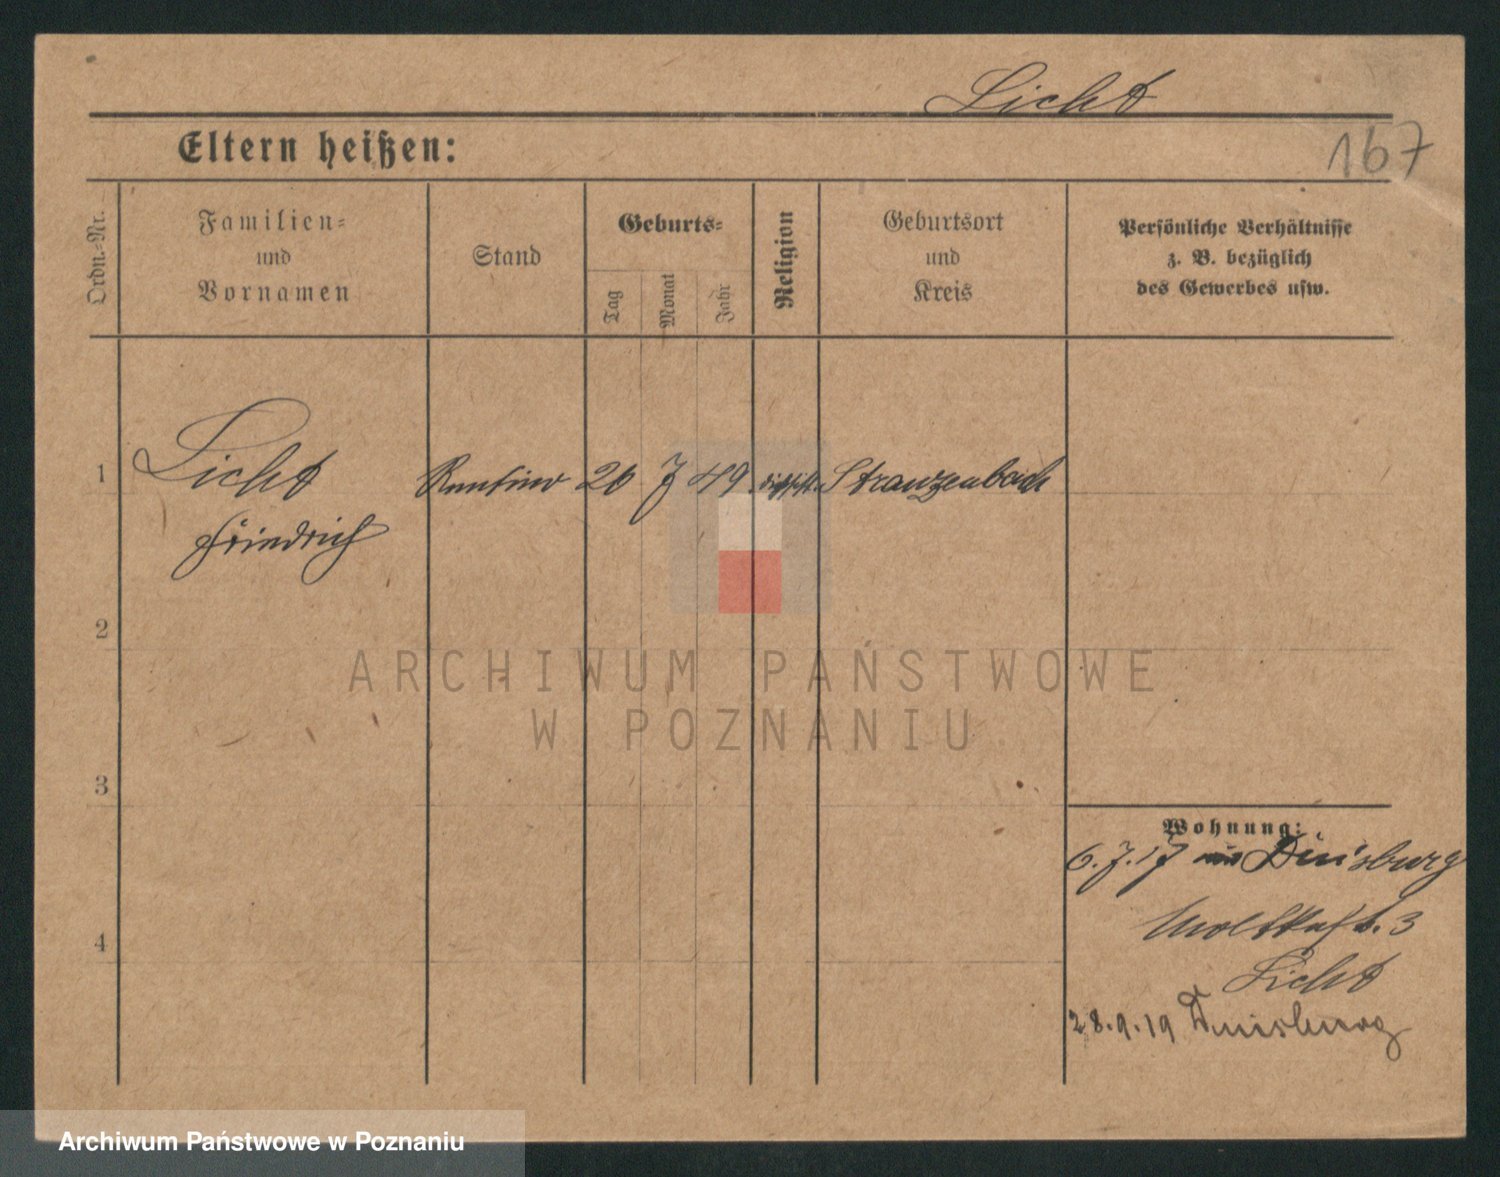 Licht
167
Eltern heißen:
Ordn.-Nr.
Familien-
und
Vornamen
Stand
Geburts-
Tag
Monat
Jahr
Religion
Geburtsort
und
Kreis
Persönliche Verhältnisse
z. B. bezüglich
des Gewerbes usw.
1
Licht
Friedrich
Rentier
26
7
49
Stranzenbach
2
3
4
Wohnung:
6.7.17 Duisburg
Moltkestr. 3
Licht
28.9.19 Duisburg
ARCHIWUM PAŃSTWOWE
W POZNANIU
Archiwum Państwowe w Poznaniu